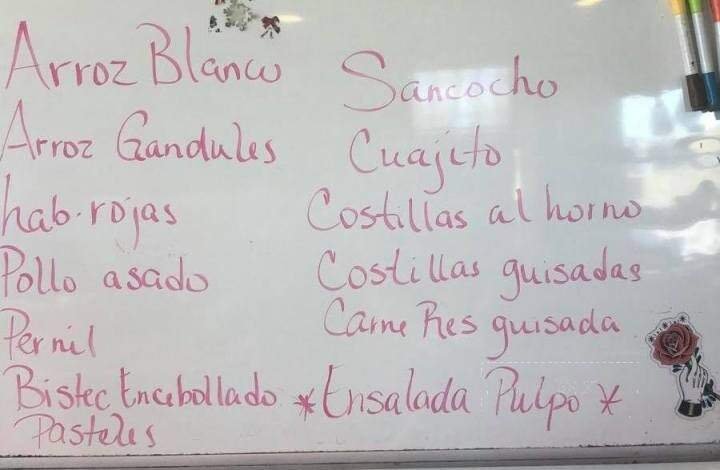 Arroz Blanco
Arroz Gandules
hab. rojas
Pollo asado
Pernil
Bistec Encebollado
Pasteles
Sancocho
Cuajito
Costillas al horno
Costillas guisadas
Carne Res guisada
*Ensalada Pulpo *